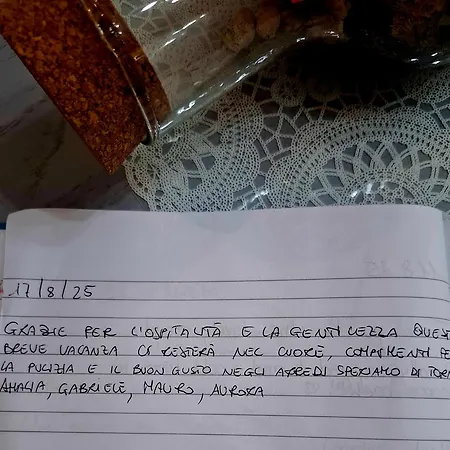 17/8/25
GRAZIE PER L'OSPITALITÀ E LA GENTILEZZA QUEST
BREVE VACANZA CI RESTERÀ NEL CUORE, COMPLIMENTI PE
LA PULIZIA E IL BUON GUSTO NEGLI ARREDI SPERIAMO DI TORN
AMALIA, GABRIELE, MAURO, AURORA